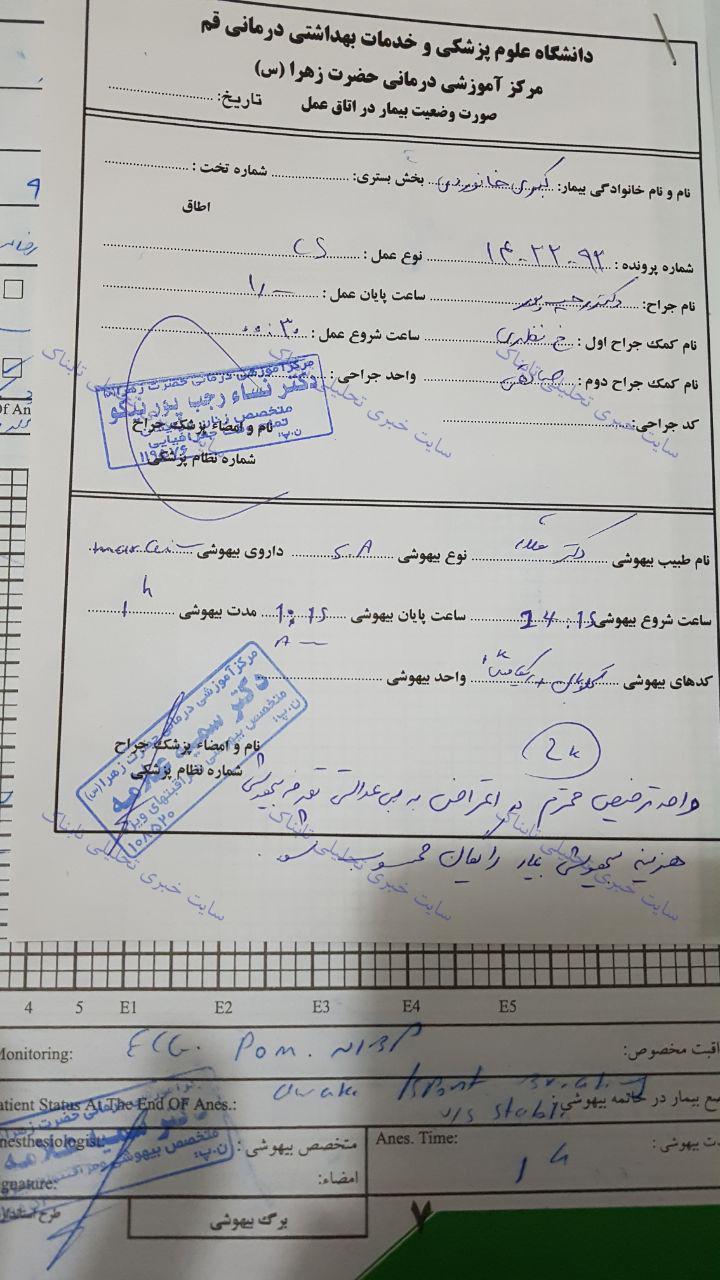 دانشگاه علوم پزشکی و خدمات بهداشتی درمانی قم
مرکز آموزشی درمانی حضرت زهرا (س)
صورت وضعیت بیمار در اتاق عمل
تاریخ:
نام و نام خانوادگی بیمار: کبری بخش بستری: شماره تخت:
اطاق
شماره پرونده: ۹۲-۲۲-۱۴ نوع عمل: CS
نام جراح: دکتر رجب پور ساعت پایان عمل: ۱/۰۰
نام کمک جراح اول: خ نظری ساعت شروع عمل: ۰۰:۳۰
نام کمک جراح دوم: واحد جراحی:
کد جراحی:
مرکز آموزشی درمانی حضرت زهرا (س)
دکتر نساء رجب پور
متخصص زنان
نام و امضاء پزشک جراح
شماره نظام پزشکی
نام طبیب بیهوشی دکتر علامه نوع بیهوشی S.A داروی بیهوشی
ساعت شروع بیهوشی 24:15 ساعت پایان بیهوشی 1:15 مدت بیهوشی 1h
کدهای بیهوشی واحد بیهوشی
مرکز آموزشی درمانی حضرت زهرا (س)
دکتر سمیه علامه
متخصص بیهوشی و مراقبتهای ویژه
نام و امضاء پزشک جراح
شماره نظام پزشکی
2k
واحد ترخیص محترم در اعتراض به بی عدالتی تعرفه بیهوشی
هزینه بیهوشی بیمار رایگان محسوب شود.
سایت خبری تحلیلی تابناک
سایت خبری تحلیلی تابناک
سایت خبری تحلیلی تابناک
سایت خبری تحلیلی تابناک
سایت خبری تحلیلی تابناک
سایت خبری تحلیلی تابناک
4 5 E1 E2 E3 E4 E5
Monitoring: ECG. POM. مراقبت مخصوص:
Patient Status At The End OF Anes.: Awake v/s stable وضع بیمار در خاتمه بیهوشی:
Anesthesiologist: متخصص بیهوشی: Anes. Time: 1h مدت بیهوشی:
Signature: امضاء:
برگ بیهوشی